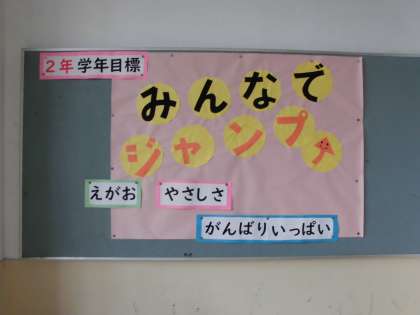 2年 学年目標
みんなで
ジャンプ
えがお
やさしさ
がんばりいっぱい